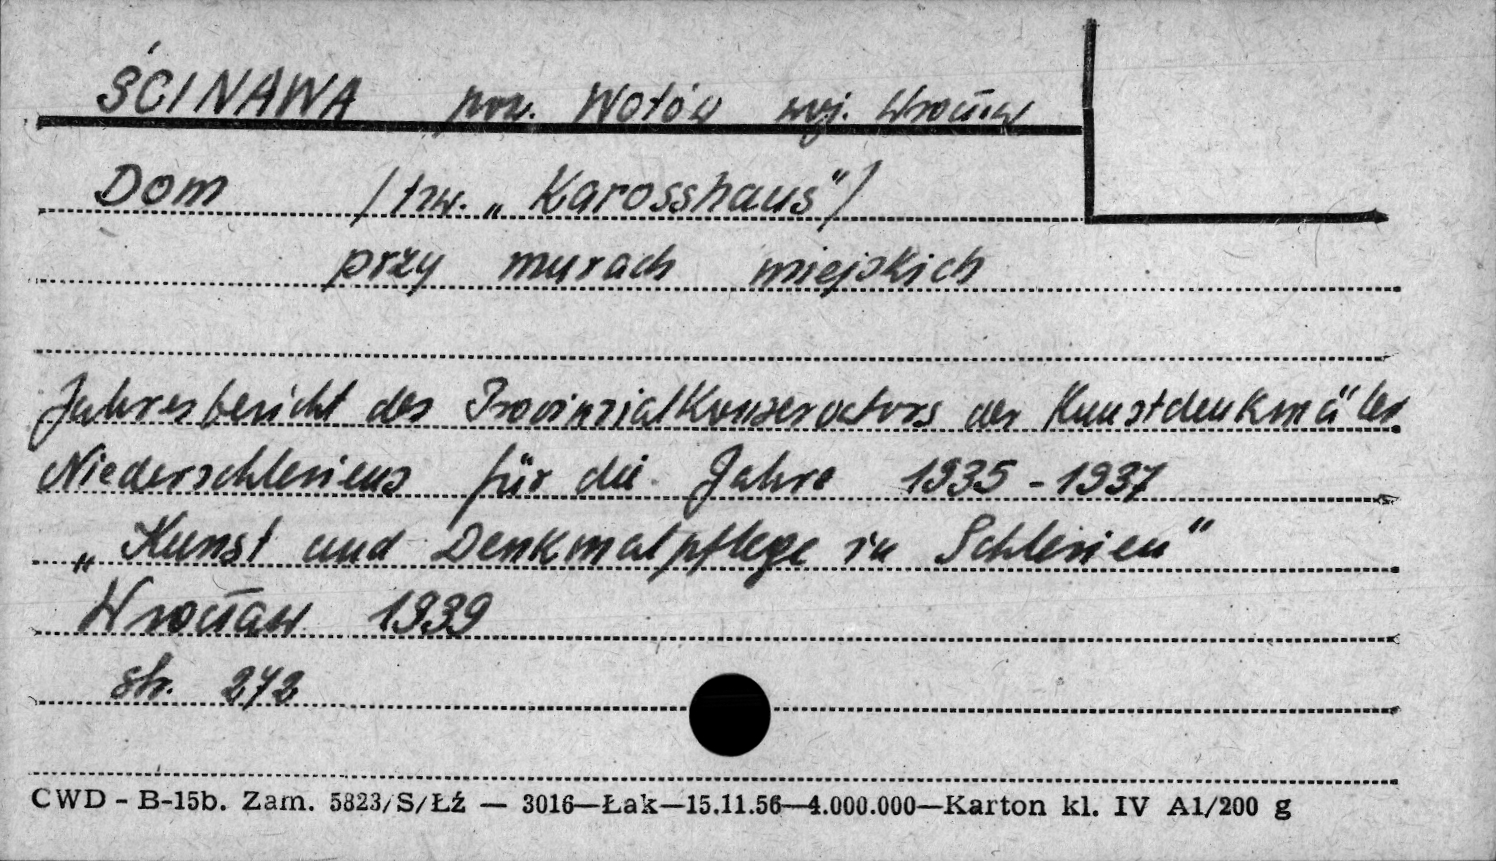 ŚCINAWA pow. Wołów woj. Wrocław
Dom /tzw. „Karosshaus"/
przy murach miejskich
Jahresbericht des Provinzialkonservators der Kunstdenkmäler
Niederschlesiens für die Jahre 1935-1937
„Kunst und Denkmalpflege in Schlesien"
Wrocław 1939
str. 272
CWD - B-15b. Zam. 5823/S/Łź — 3016—Łak—15.11.56—4.000.000—Karton kl. IV A1/200 g